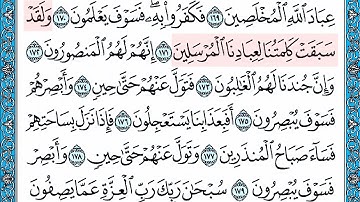 عِبَادَ ٱللَّهِ ٱلْمُخْلَصِينَ ١٦٩ فَكَفَرُوا۟ بِهِۦ ۖ فَسَوْفَ يَعْلَمُونَ ١٧٠ وَلَقَدْ
سَبَقَتْ كَلِمَتُنَا لِعِبَادِنَا ٱلْمُرْسَلِينَ ١٧١ إِنَّهُمْ لَهُمُ ٱلْمَنصُورُونَ ١٧٢
وَإِنَّ جُندَنَا لَهُمُ ٱلْغَـٰلِبُونَ ١٧٣ فَتَوَلَّ عَنْهُمْ حَتَّىٰ حِينٍ ١٧٤ وَأَبْصِرْهُمْ
فَسَوْفَ يُبْصِرُونَ ١٧٥ أَفَبِعَذَابِنَا يَسْتَعْجِلُونَ ١٧٦ فَإِذَا نَزَلَ بِسَاحَتِهِمْ
فَسَآءَ صَبَاحُ ٱلْمُنذَرِينَ ١٧٧ وَتَوَلَّ عَنْهُمْ حَتَّىٰ حِينٍ ١٧٨ وَأَبْصِرْ
فَسَوْفَ يُبْصِرُونَ ١٧٩ سُبْحَـٰنَ رَبِّكَ رَبِّ ٱلْعِزَّةِ عَمَّا يَصِفُونَ